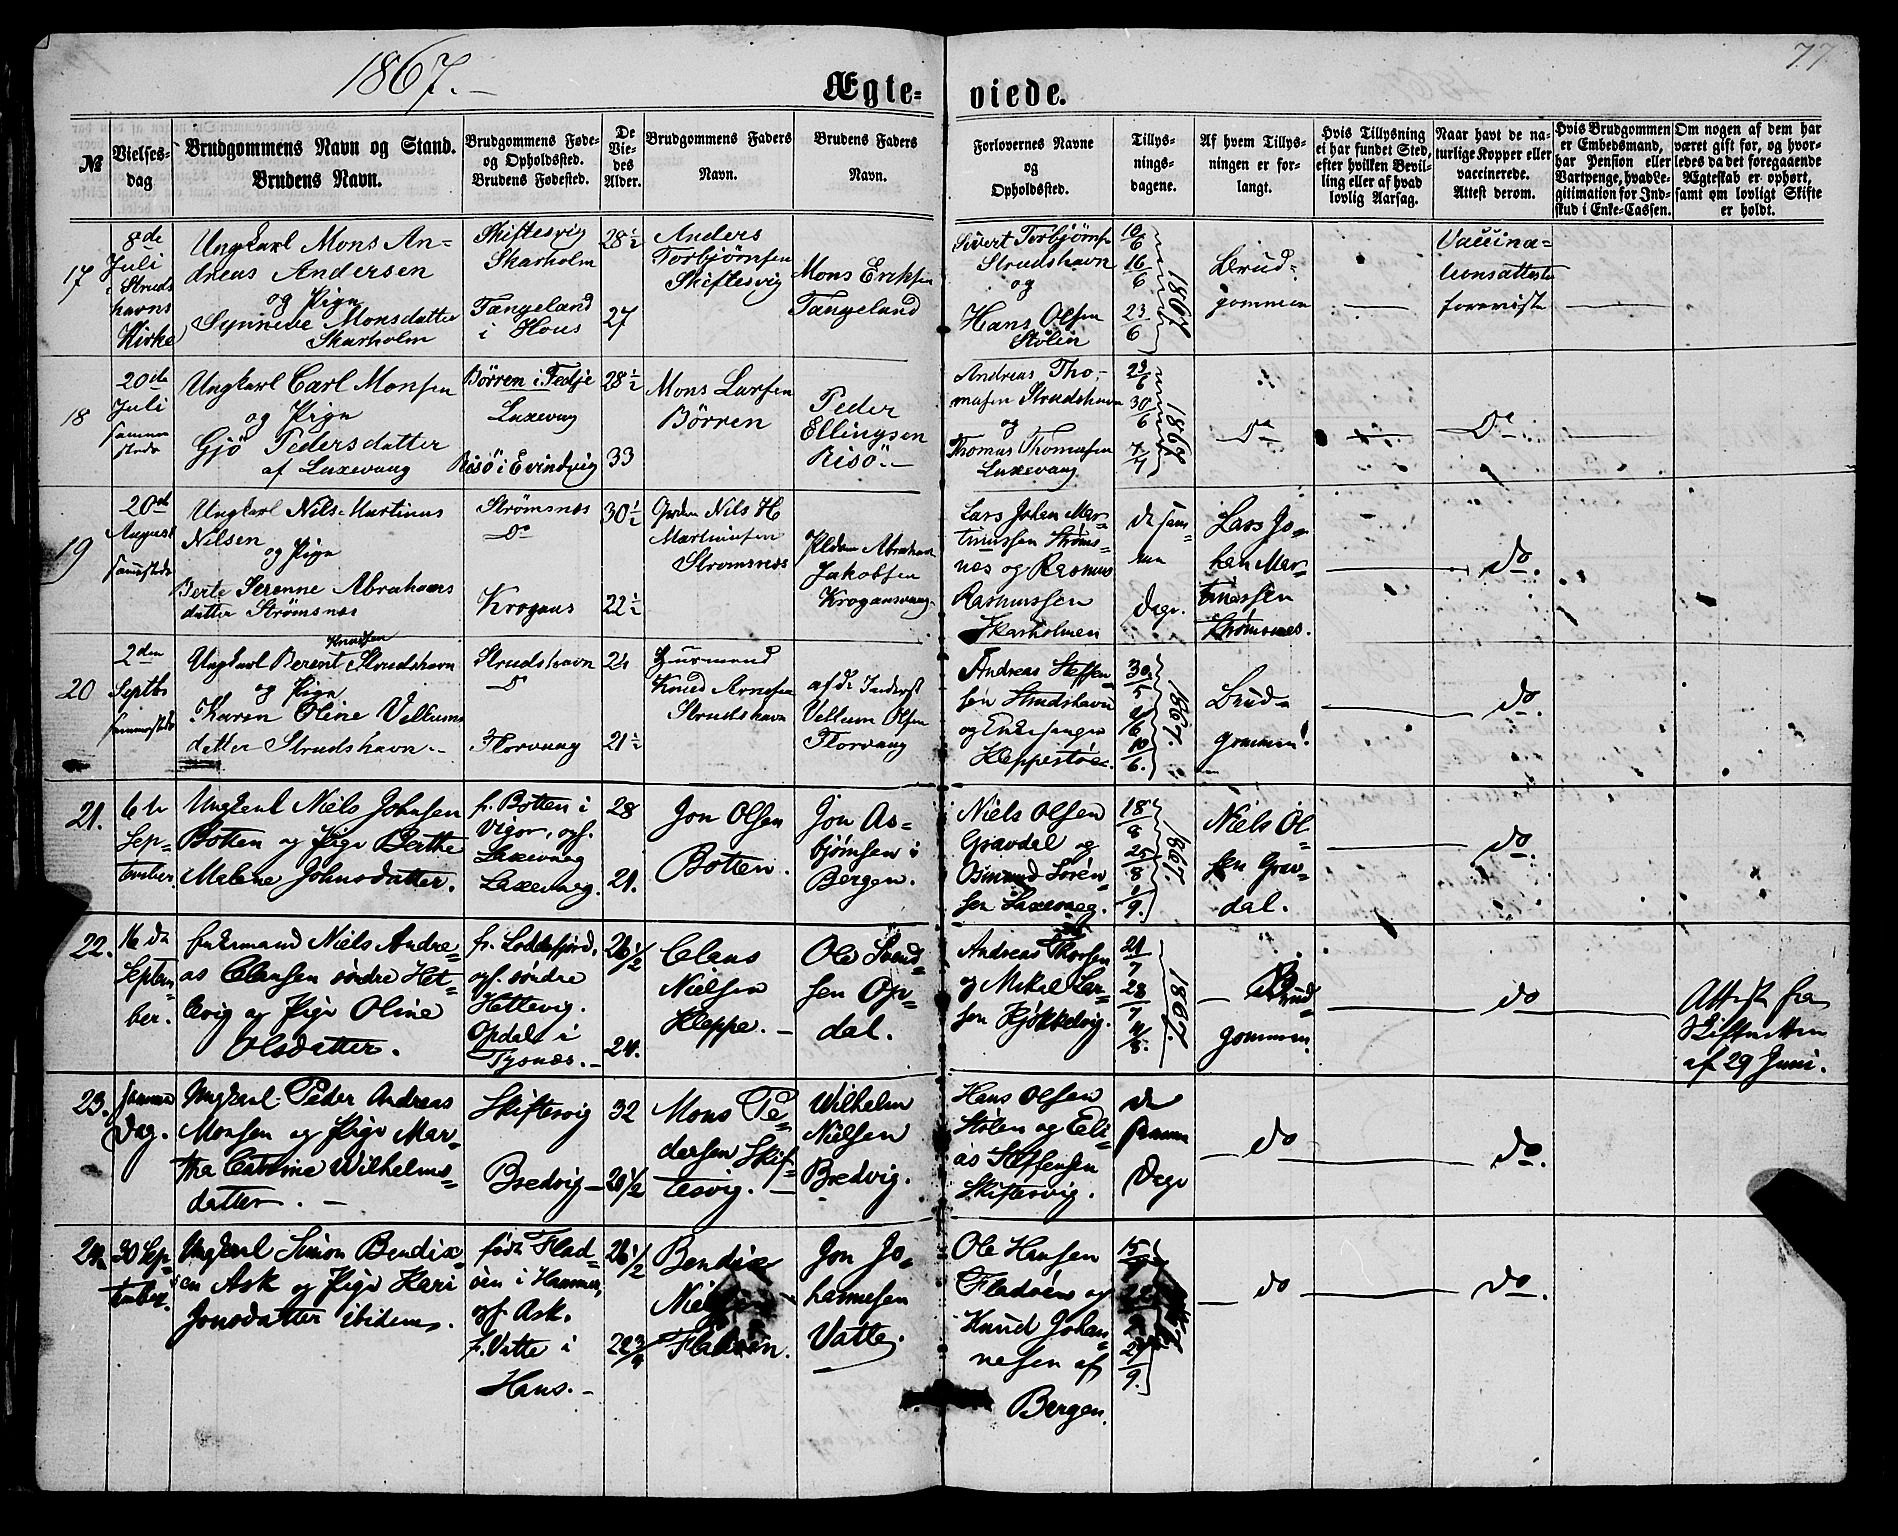 1867.
Ægte=
viede.
77
№
Vielses-
dag
Brudgommens Navn og Stand.
Brudens Navn.
Brudgommens Føde-
og Opholdssted.
Brudens Fødested.
De
Vie-
des
Alder.
Brudgommens Faders
Navn.
Brudens Faders
Navn.
Forlovernes Navne
og
Opholdssted.
Tillys-
nings-
dagene.
Af hvem Tillys-
ningen er for-
langt.
Hvis Tillysning
ei har fundet Sted,
efter hvilken Bevil-
ling eller af hvad
lovlig Aarsag.
Naar havt de na-
turlige Kopper eller
vaccinerede.
Attest derom.
Hvis Brudgommen
er Embedsmand,
har Pension eller
Vartpenge, hvad Le-
gitimation for Ind-
skud i Enke-Cassen.
Om nogen af dem har
været gift før, og hvor-
ledes da det foregaaende
Ægteskab er ophørt,
samt om lovligt Skifte
er holdt.
17
8de
Juli
i Struds
havns
Kirke
Ungkarl Mons An=
dreas Andersen
og Pige
Synneve Monsdatter
Skarholm
Skiftesvig
Skarholm
Tangeland
i Hous
28½
27
Anders
Torbjörnsen
Skiftesvig
Mons Eriksen
Tangeland
Sivert Torbjörns
Strudshavn
og
Hans Olsen
Stölen
10/6
16/6
23/6
1867
Brud=
gommen
Vaccina=
tionsattester
foreviste
18
20de
Juli
sammen
steds
Ungkarl Carl Monsen
og Pige
Gjö Pedersdatter
af Laxevaag
Börren i Fedje
Laxevaag
Risö i Evindvig
28½
33
Mons Larsen
Börren
Peder
Ellingsen
Risö.-
Andreas Tho-
masen Strudshavn
og
Thomas Thomasen
Laxevaag
23/6
30/6
7/7
1867
Do
Do
19
20de
August
sammesteds
Ungkarl Nils Martinus
Nilsen
og Pige
Berte Serenne Abrahams
datter Strömsnes
Strömsnes
Do
Krogaas
30½
22½
Nils H
Martinusen
Stromsnes
Abraham
Jakobsen
Krogaasvaag.
Lars Johan Mar=
tinussen Ströms=
nes og Rasmus
Rasmussen
Skarholmen
de sam=
me
Dage.
Lars Jo=
han Mar=
tinussen
Strömsnes.
do.
20
2den
Septbr
sammesteds
Knudsen
Ungkarl Berent Strudshavn
og Pige
Karen Oline Villums
datter Strudshavn.
Strudshavn
Do
Florvaag
24
21½
Huusmand
Knud Arnesen
Strudshavn
afdr Inderst
Vellum Olsen
Florvaag
Andreas Steffen=
sen Strudshavn
og
Kleppestöe.
30/5
10/6
1867.
Brud=
gommen.
do
21.
6te
Sep=
tember.
Ungkarl Niels Johnsen
Botten og Pige Berthe
Malene Johnsdatter.
f. Botten i
Vigör, opf.
Laxevaag
Laxevaag.
28
21.
Jon Olsen
Botten.
Jon As=
bjørnsen i
Bergen.
Niels Olsen
Gravdal og
Osmund Sören=
sen Laxevaag.
18/8
25/8
1/9.
1867.
Niels Ol=
sen Grav=
dal.
do.
22.
16de
Septem=
ber.
Enkemand Niels Andre=
as Clausen söndre Het=
levig og Pige Oline
Olsdatter.
f. Loddefjord.
opf. söndre
Hettevig.
Opdal i
Tysnæs.
26½
24.
Claus
Nielsen
Kleppe.
Ole Svend=
sen Op=
dal.
Andreas Thorsen
og Mikal Lar=
sen Kjøkkelvig.
21/7
28/7
4/8.
1867.
Brud=
gommen.
do
Attest fra
Skifteretten
af 29 Juni.
23.
samme
Dag.
Ungkarl Peder Andreas
Monsen og Pige Mar=
tha Catrine Wilhelms=
datter.
Skiftesvig
Bredvig
32
20½
Mons Pe=
dersen Skif=
tesvig.
Wilhelm
Nielsen
Bredvig.
Hans Olsen
Stölen og Eli=
as Steffensen
Skiftesvig.
de
samme
Dage
do
do.
24.
30 Sep=
tember.
Ungkarl Simon Bendix=
en Ask og Pige Kari
Jonsdatter ibidem.
född Flad=
öen i Hammer,
opf. Ask.
f. Vatte i
Haus.
26½
22¾
Bendix
Nielsen
Fladöen.
Jon Jo=
hannesen
Vatle.
Ole Hansen
Fladöens og
Knud Johan=
nesen af
Bergen.
15/9
22/9
29/9.
1867
do
do.